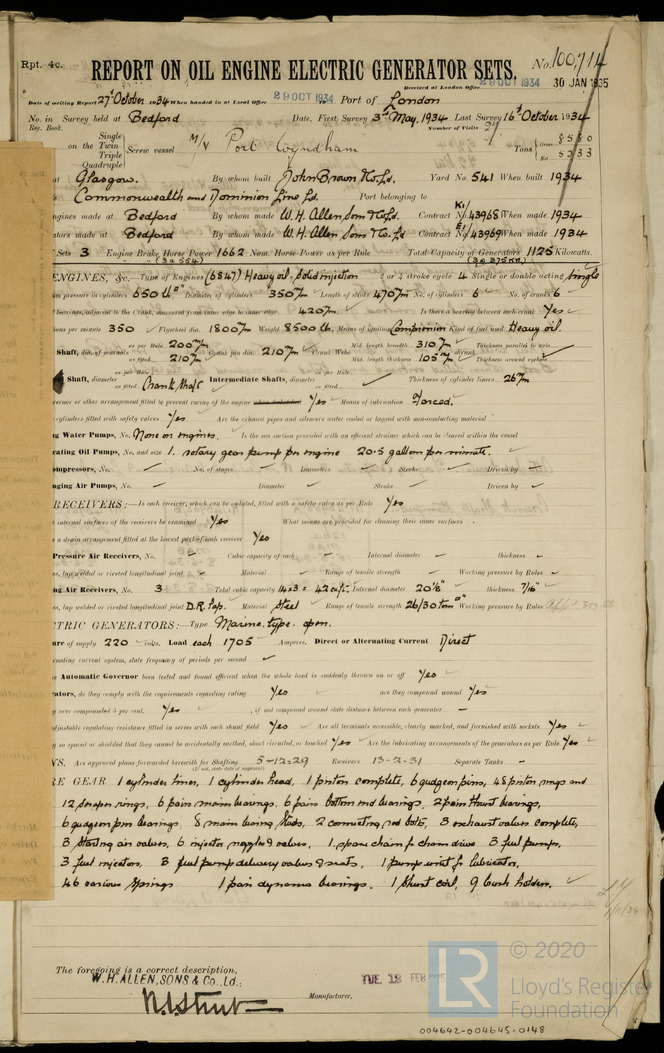 Rpt. 4c.
REPORT ON OIL ENGINE ELECTRIC GENERATOR SETS.
No. 100,714
Received at London Office 29 OCT 1934 30 JAN 1935
Date of writing Report 27th October 1934 When handed in at Local Office 29 OCT 1934 Port of London
No. in Survey held at Bedford Date, First Survey 3rd May, 1934 Last Survey 16th October 1934
Reg. Book. Number of Visits
Single
on the Twin Triple Quadruple Screw vessel M/V Port Wyndham Tons Gross 8580 Net
at Glasgow. By whom built John Brown & Co. Ld. Yard No. 541 When built 1934
Commonwealth and Dominion Line Ld. Port belonging to
ngines made at Bedford By whom made W. H. Allen Sons & Co. Ld. Contract No. K1/43968 When made 1934
ators made at Bedford By whom made W. H. Allen Sons & Co. Ld Contract No. E1/43969 When made 1934
Sets 3 Engine Brake Horse Power 1662 Nom. Horse Power as per Rule Total Capacity of Generators 1125 Kilowatts.
(3 @ 554) (3 @ 375 KW.)
ENGINES, &c.—Type of Engines (6S47) Heavy oil, Solid injection 2 or 4 stroke cycle 4 Single or double acting Single
m pressure in cylinders 650 lb/□" Diameter of cylinders 350 m/m Length of stroke 470 m/m No. of cylinders 6 No. of cranks 6
bearings, adjacent to the Crank, measured from inner edge to inner edge 420 m/m Is there a bearing between each crank Yes
ions per minute 350 Flywheel dia. 1800 m/m Weight 8500 lb. Means of ignition Compression Kind of fuel used Heavy oil.
Shaft, dia. of journals as per Rule 200 m/m as fitted 210 m/m Crank pin dia. 210 m/m Crank Webs Mid. length breadth 310 m/m Mid. length thickness 105 m/m shrunk Thickness parallel to axis Thickness around eyehole
el Shaft, diameter as per Rule as fitted Crank shaft Intermediate Shafts, diameter as per Rule as fitted Thickness of cylinder liners 26 m/m
vernor or other arrangement fitted to prevent racing of the engine Yes Means of lubrication Forced.
cylinders fitted with safety valves Yes Are the exhaust pipes and silencers water cooled or lagged with non-conducting material
ng Water Pumps, No. None on engines. Is the sea suction provided with an efficient strainer which can be cleared within the vessel
cating Oil Pumps, No. and size 1. rotary gear pump per engine 20.5 gallons per minute.
ompressors, No. - No. of stages - Diameters - Stroke - Driven by -
nging Air Pumps, No. - Diameter - Stroke - Driven by -
RECEIVERS:—Is each receiver, which can be isolated, fitted with a safety valve as per Rule Yes
e internal surfaces of the receivers be examined Yes What means are provided for cleaning their inner surfaces
s a drain arrangement fitted at the lowest part of each receiver Yes
Pressure Air Receivers, No. - Cubic capacity of each - Internal diameter - thickness -
s, lap welded or riveted longitudinal joint - Material - Range of tensile strength - Working pressure by Rules -
ng Air Receivers, No. 3 Total cubic capacity 14 x 3 = 42 c.ft. Internal diameter 20⅛" thickness 7/16"
s, lap welded or riveted longitudinal joint D.R. Lap. Material Steel Range of tensile strength 26/30 tons □" Working pressure by Rules
TRIC GENERATORS:—Type Marine type. open.
ure of supply 220 volts. Load each 1705 Amperes. Direct or Alternating Current Direct
ernating current system, state frequency of periods per second
e Automatic Governor been tested and found efficient when the whole load is suddenly thrown on or off Yes
rators, do they comply with the requirements regarding rating Yes are they compound wound Yes
ey over compounded 5 per cent. Yes , if not compound wound state distance between each generator -
adjustable regulating resistance fitted in series with each shunt field Yes Are all terminals accessible, clearly marked, and furnished with sockets Yes
y so spaced or shielded that they cannot be accidentally, short circuited, or touched Yes Are the lubricating arrangements of the generators as per Rule Yes
NS. Are approved plans forwarded herewith for Shafting 5-12-29 Receivers 13-2-31 Separate Tanks -
(If not, state date of approval)
RE GEAR 1 cylinder liner, 1 cylinder head, 1 piston complete, 6 gudgeon pins, 48 piston rings and
12 scraper rings, 6 pairs main bearings, 6 pairs bottom end bearings, 2 pairs thrust bearings,
6 gudgeon pin bearings 8 main bearing studs, 2 connecting rod bolts, 3 exhaust valves complete,
3 starting air valves, 6 injector nozzles & valves, 1 spare chain for chain drive 3 fuel pumps,
3 fuel injectors, 3 fuel pump delivery valves & seats, 1 pump unit for lubricator,
46 various springs 1 pair dynamo bearings. 1 shunt coil, 9 brush holders,
The foregoing is a correct description,
W. H. ALLEN, SONS & Co., Ld.:
Manufacturer.
TUE. 12 FEB
© 2020
LR
Lloyd's Register
Foundation
004642-004645-0148